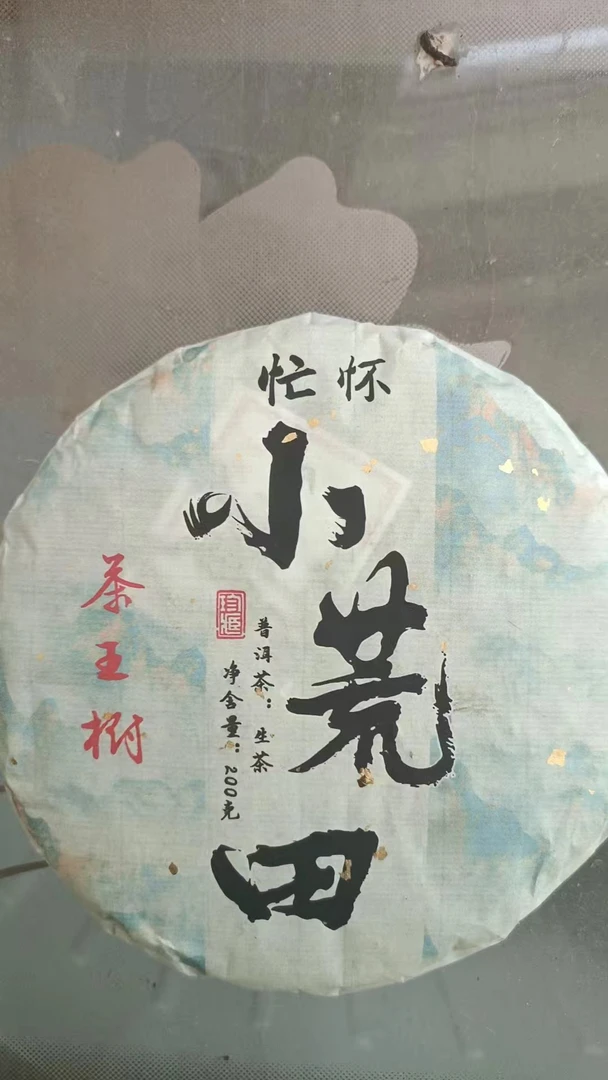 忙怀
小荒田
茶王树
普洱茶：生茶
净含量：200克